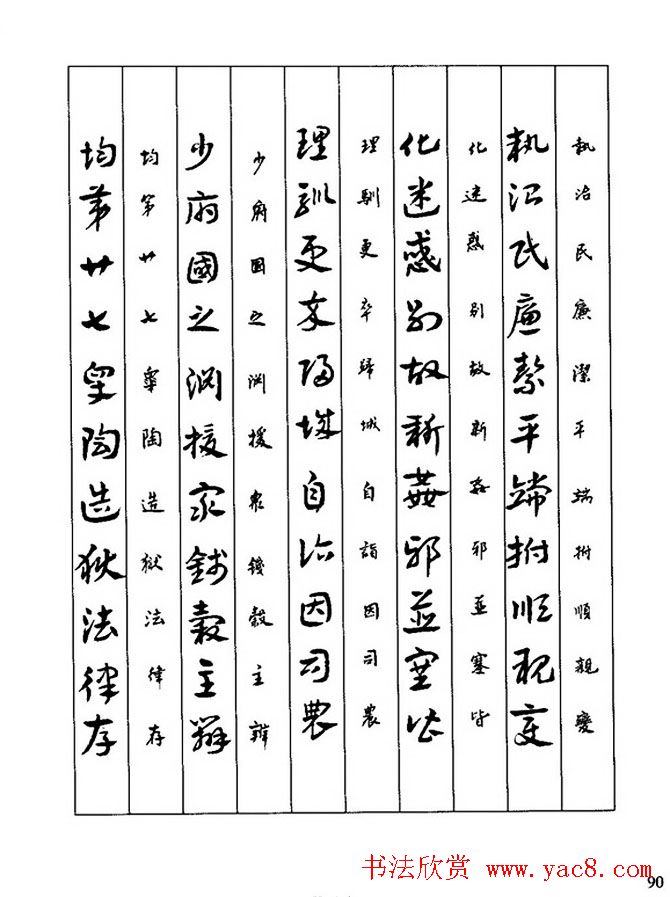 執治民廉潔平端拊順親變
執治民廉絜平端拊順親變
化迷惑別故新姦邪並塞皆
化迷惑別故新姦邪並塞皆
理馴更卒歸城自詣因司農
理馴更卒歸城自詣因司農
少府國之淵援眾錢穀主辨
少府國之淵援眾錢穀主辨
均第廿七皋陶造獄法律存
均第廿七皋陶造獄法律存
书法欣赏 www.yac8.com
90